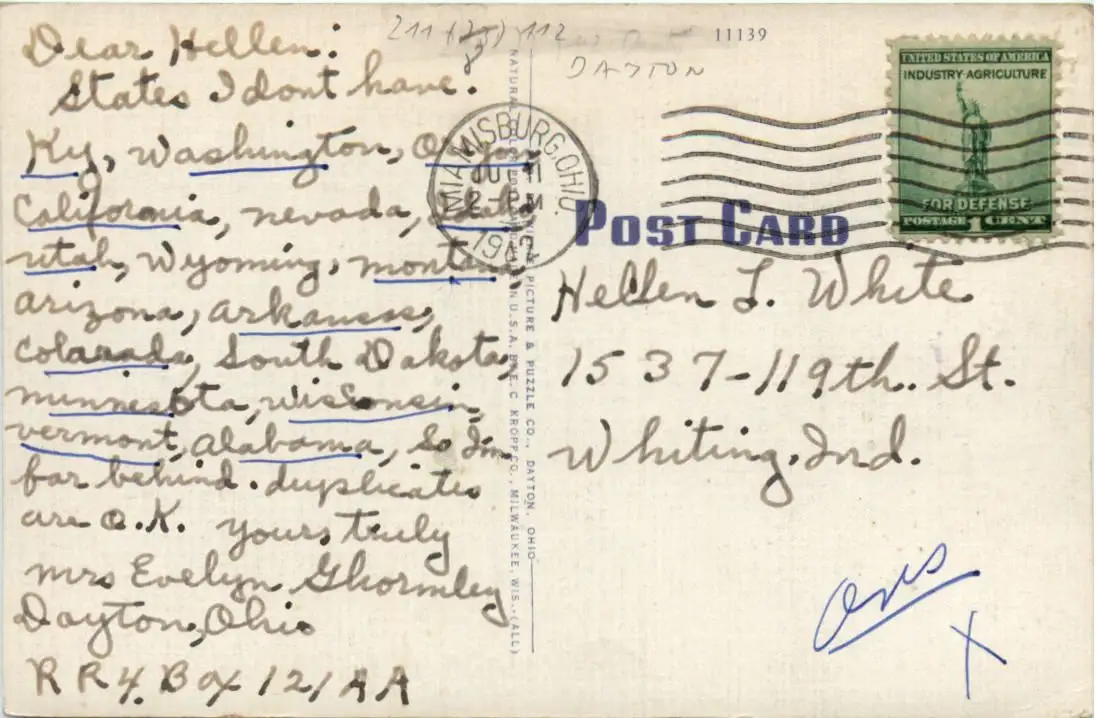 Dear Hellen:
States I dont have.
Ky, Washington, Oregon
California, nevada, Idaho
utah, Wyoming, montana
arizona, arkansas,
Colarada, South Dakota,
minnesota, wisconsin,
vermont, alabama, So Im
far behind. duplicates
are O.K. yours truly
mrs Evelyn Ghormley
Dayton, Ohio
R R 4. Box 121AA
211 (25) 112
8
DAYTON
11139
MIAMISBURG, OHIO
2-PM
PICTURE & PUZZLE CO., DAYTON, OHIO
U.S.A. BY E. C. KROPP CO., MILWAUKEE, WIS. (ALL)
UNITED STATES OF AMERICA
INDUSTRY·AGRICULTURE
FOR DEFENSE
POSTAGE 1 CENT
POST CARD
Hellen L. White
1537-119th. St.
Whiting. Ind.
X